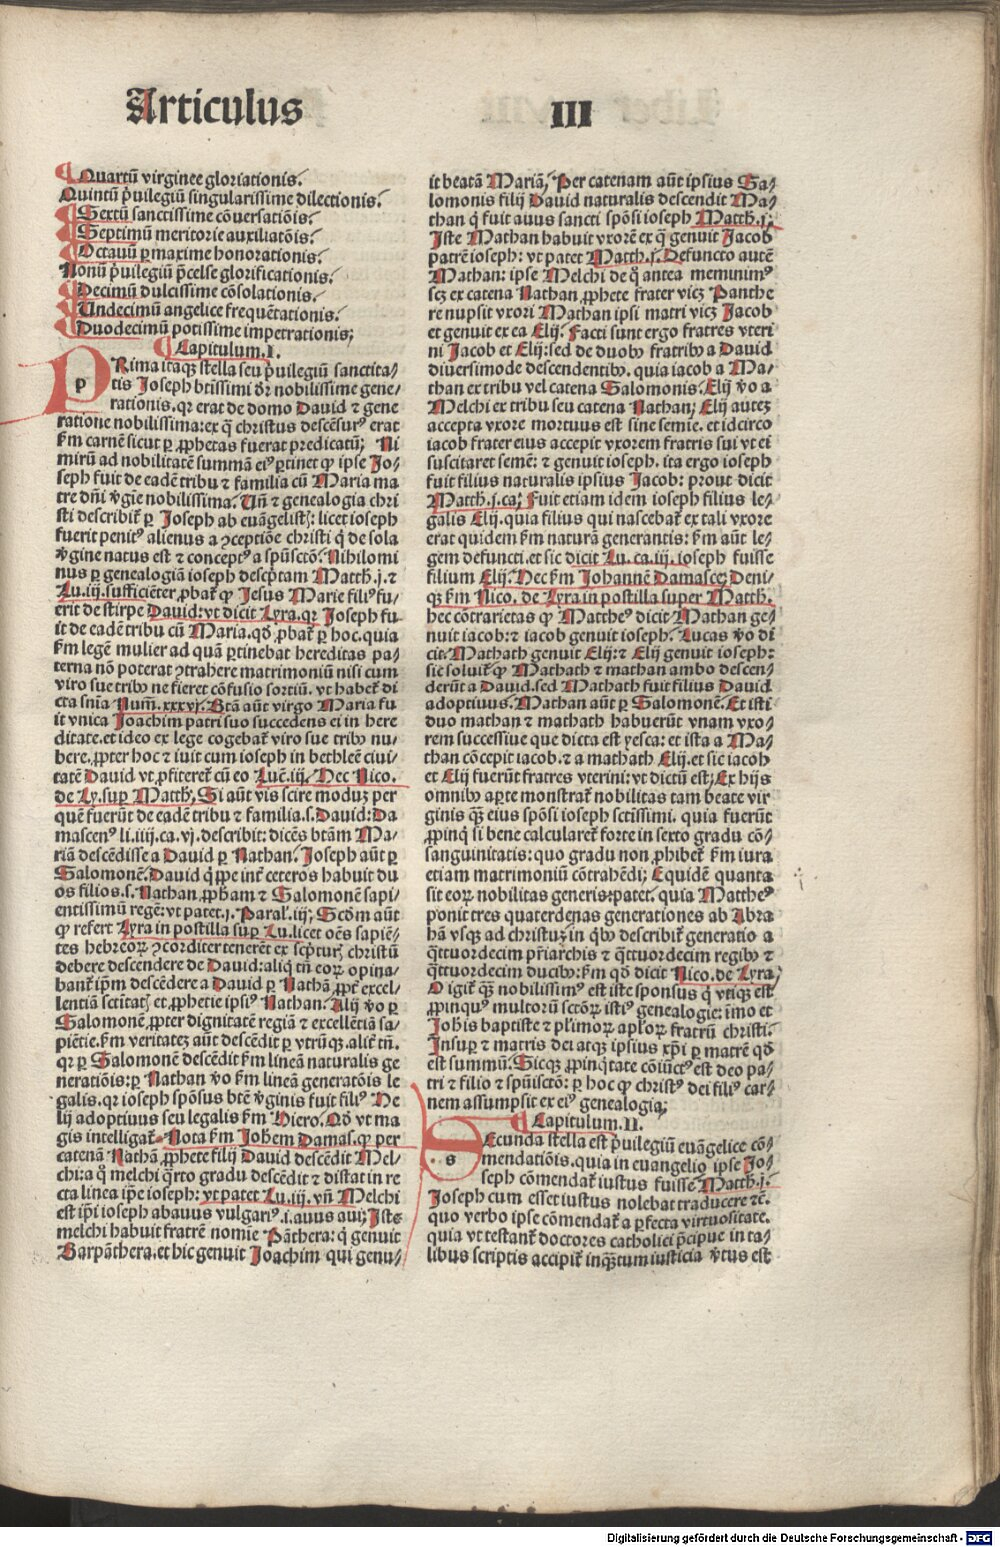 Articulus III
¶ Quartū virginee gloriationis.
Quintū p̄uilegiū singularissime dilectionis.
¶ Sextū sanctissime cōuersatiōis.
¶ Septimū meritorie auxiliatōis.
¶ Octauū ꝑmaxime honorationis.
Nonū p̄uilegiū p̄celse glorificationis.
¶ Decimū dulcissime cōsolationis.
¶ Undecimū angelice frequētationis.
¶ Duodecimū potissime impetrationis;
¶ Capitulum .I.
PRima itaqꝫ stella seu p̄uilegiū sanctita/
tis Joseph btissimi dr̄ nobilissime gene/
rationis. qꝛ erat de domo Dauid ⁊ gene
ratione nobilissima: ex q̄ christus descēsurꝰ erat
ẜm carnē sicut ꝑ ꝓphetas fuerat predicatū; Ni
mirū ad nobilitatē summā eiꝰ ꝑtinet ꝙ ipse Jo/
seph fuit de eadē tribu ⁊ familia cū Maria ma
tre dn̄i v̄gīe nobilissima. Un̄ ⁊ genealogia chri
sti describit̄ ꝑ Joseph ab euāgelistꝭ: licet ioseph
fuerit penitꝰ alienus a ↄceptiōe christi q̄ de sola
v̄gine natus est ⁊ conceptꝰ a spūsctō. Nihilomi
nus ꝑ genealogiā ioseph descp̄tam Matth.j.⁊
Lu.iij. sufficiēter ꝓbat̄ ꝙ Jesus Marie filiꝰ fu/
erit de stirpe Dauid: vt dicit Lyra. qꝛ Joseph fu
it de eadē tribu cū Maria. qd̄ ꝓbat̄ ꝑ hoc. quia
ẜm legē mulier ad quā ꝑtinebat hereditas pa/
terna nō poterat ↄtrahere matrimoniū nisi cum
viro sue tribꝰ ne fieret cōfusio sortiū. vt habet̄ di
cta sn̄ia Num̄.xxxvj. Btā aūt virgo Maria fu
it vnica Joachim patri suo succedens ei in here
ditate. et ideo ex lege cogebat̄ viro sue tribꝰ nu/
bere. ꝓpter hoc ⁊ iuit cum ioseph in bethleē ciui/
tatē Dauid vt ꝓfiteret̄ cū eo Luc̄.iij. Hec Nico.
de Ly. suꝑ Matth. Si aūt vis scire moduꝫ per
quē fuerūt de eadē tribu ⁊ familia. s. Dauid: Da
mascenꝰ li.iiij.ca.vj. describit: dicēs btām Ma/
riā descēdisse a Dauid ꝑ Nathan. Joseph aūt ꝑ
Salomonē. Dauid q̄ppe int̄ ceteros habuit du
os filios. s. Nathan ꝓphā̄m ⁊ Salomonē sapi/
entissimū regē: vt patet .j. Paral̄.iij; Scd̄m aūt
ꝙ refert Lyra in postilla suꝑ Lu. licet oēs sapiē/
tes hebreoꝝ ↄcorditer tenerēt ex scp̄turꝭ christū
debere descendere de Dauid: aliq̄ tn̄ eoꝝ opina/
bant̄ ip̄m descēdere a Dauid ꝑ Nathā ꝓpt̄ excel/
lentiā sctitatꝭ et ꝓphetie ipsiꝰ Nathan. Alij v̄o ꝑ
Salomonē ꝓpter dignitatē regiā ⁊ excellētiā sa/
piētie. ẜm veritateꝫ aūt descēdit ꝑ vtrūqꝫ. alit̄ tn̄.
qꝛ ꝑ Salomonē descēdit ẜm lineā naturalis ge
neratiōis: ꝑ Nathan v̄o ẜm lineā generatōis le
galis. qꝛ ioseph spōsus btē v̄ginis fuit filiꝰ He
lij adoptiuus seu legalis ẜm Hiero. Qd̄ vt ma
gis intelligat̄. Nota ẜm Joh̄em Damas. ꝙ per
catenā Nathā ꝓphete filij Dauid descēdit Mel/
chi: a q̄ melchi q̄rto gradu descēdit ⁊ distat in re
cta linea ip̄e ioseph: vt patet Lu.iij. vn̄ Melchi
est ip̄i ioseph abauus vulgariꝰ .i. auus aui; Iste
melchi habuit fratrē nomīe Pāthera: q̄ genuit
Barpāthera. et hic genuit Joachim qui genu/
it beatā Mariā; Per catenam aūt ipsius Sa/
lomonis filij Dauid naturalis descendit Ma/
than q̄ fuit auus sancti spōsi ioseph Matth.j.
Iste Mathan habuit vxorē ex q̄ genuit Jacob
patrē ioseph: vt patet Matth.j. Defuncto autē
Mathan: ipse Melchi de q̄ antea meminimꝰ
scꝫ ex catena Nathan ꝓphete frater vicꝫ Panthe
re nupsit vxori Mathan ipsi matri vicꝫ Jacob
et genuit ex ea Elij. Facti sunt ergo fratres vteri
ni Jacob et Elij: sed de duobꝰ fratribꝰ a Dauid
diuersimode descendentibꝰ. quia iacob a Ma/
than ex tribu vel catena Salomonis. Elij v̄o a
Melchi ex tribu seu catena Nathan; Elij auteꝫ
accepta vxore mortuus est sine semīe. et idcirco
iacob frater eius accepit vxorem fratris sui vt ei
suscitaret semē: ⁊ genuit ioseph. ita ergo ioseph
fuit filius naturalis ipsius Jacob: prout dicit
Matth.j.ca; Fuit etiam idem ioseph filius le/
galis Elij. quia filius qui nascebat̄ ex tali vxore
erat quidem ẜm naturā generantis: ẜm aūt le/
gem defuncti. et sic dicit Lu.ca.iij. ioseph fuisse
filium Elij. Hec ẜm Johannē Damasceꝫ. Deni/
qꝫ ẜm Nico. de Lyra in postilla super Matth.
hec cōtrarietas ꝙ Mattheꝰ dicit Mathan ge/
nuit iacob: ⁊ iacob genuit ioseph. Lucas v̄o di
cit. Mathath genuit Elij: ⁊ Elij genuit ioseph:
sic soluit̄ ꝙ Mathath ⁊ mathan ambo descen/
derūt a Dauid. sed Mathath fuit filius Dauid
adoptiuus. Mathan aūt ꝑ Salomonē. Et isti
duo mathan ⁊ mathath habuerūt vnam vxo/
rem successiue que dicta est yesca: et ista a Ma/
than cōcepit iacob. ⁊ a mathath Elij. et sic iacob
et Elij fuerūt fratres vterini: vt dictū est; Ex hijs
omnibꝰ aꝑte monstrat̄ nobilitas tam beate vir
ginis qꝫ eius spōsi ioseph sctissimi. quia fuerūt
ꝓpinq̄ si bene calcularet̄ forte in sexto gradu cō/
sanguinitatis: quo gradu non ꝓhibet̄ ẜm iura
etiam matrimoniū cōtrahēdi; Equidē quanta
sit eoꝝ nobilitas generis: patet. quia Mattheꝰ
ponit tres quaterdenas generationes ab Abra
hā vsqꝫ ad christuꝫ in q̄bꝰ describit̄ generatio a
q̄ttuordecim pr̄iarchis ⁊ q̄ttuordecim regibꝰ ⁊
q̄ttuordecim ducibꝰ: ẜm qd̄ dicit Nico. de Lyra;
O igit̄ qꝫ nobilissimꝰ est iste sponsus q̄ vtiqꝫ est
ꝓpinquꝰ multorū sctōꝝ istiꝰ genealogie: īmo et
Joh̄is baptiste ⁊ pl̄imoꝝ apl̄oꝝ fratrū christi.
Insuꝑ ⁊ matris dei atqꝫ ipsius xp̄i ꝑ matrē qd̄
est summū. Sicqꝫ ꝓpinq̄tate cōiūctꝰ est deo pa/
tri ⁊ filio ⁊ spūisctō: ꝑ hoc ꝙ christꝰ dei filiꝰ car/
nem assumpsit ex eiꝰ genealogia;
¶ Capitulum .II.
SEcunda stella est p̄uilegiū euāgelice cō/
mendatiōis. quia in euangelio ipse Jo/
seph cōmendat̄ iustus fuisse Matth.j.
Joseph cum esset iustus nolebat traducere ⁊c̄.
quo verbo ipse cōmendat̄ a ꝑfecta virtuositate.
quia vt testant̄ doctores catholici p̄cipue in ta/
libus scriptis accipit̄ inqꝫtum iusticia v̄tus est
Digitalisierung gefördert durch die Deutsche Forschungsgemeinschaft - DFG